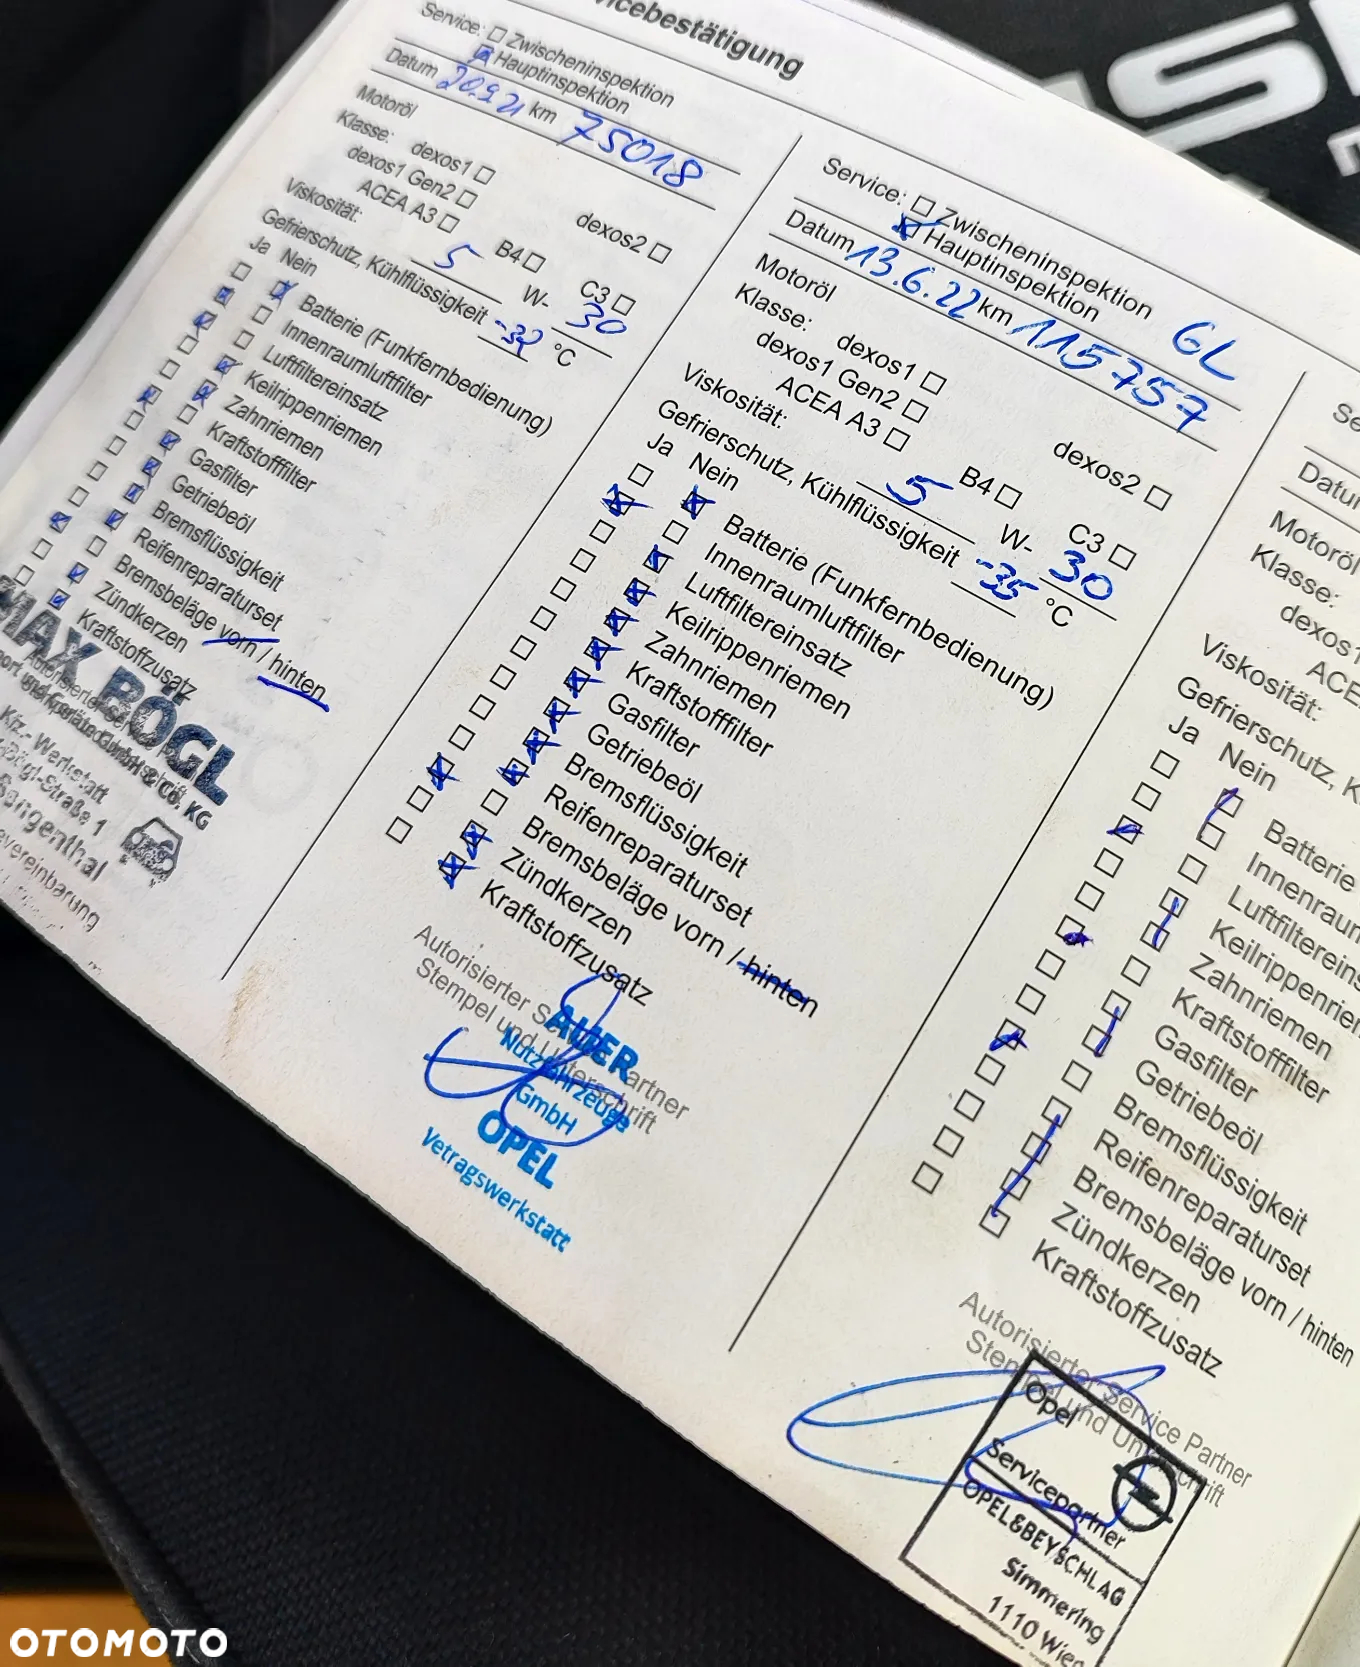 icebestätigung
Service: Zwischeninspektion
Hauptinspektion
Datum 20.9.21 km 75018
Motoröl
Klasse: dexos1
dexos1 Gen2 dexos2
ACEA A3 B4 C3
Viskosität: 5 W- 30
Gefrierschutz, Kühlflüssigkeit °C
Ja Nein
Batterie (Funkfernbedienung)
Innenraumluftfilter
Luftfiltereinsatz
Keilrippenriemen
Zahnriemen
Kraftstofffilter
Gasfilter
Getriebeöl
Bremsflüssigkeit
Reifenreparaturset
Bremsbeläge vorn / hinten
Zündkerzen
Kraftstoffzusatz
MAX BÖGL
GmbH & Co. KG
Kfz.- Werkstatt
Bögl-Straße 1
Sengenthal
Service: Zwischeninspektion
Hauptinspektion GL
Datum 13.6.22 km 115757
Motoröl
Klasse: dexos1
dexos1 Gen2 dexos2
ACEA A3 B4 C3
Viskosität: 5 W- 30
Gefrierschutz, Kühlflüssigkeit -35 °C
Ja Nein
Batterie (Funkfernbedienung)
Innenraumluftfilter
Luftfiltereinsatz
Keilrippenriemen
Zahnriemen
Kraftstofffilter
Gasfilter
Getriebeöl
Bremsflüssigkeit
Reifenreparaturset
Bremsbeläge vorn / hinten
Zündkerzen
Kraftstoffzusatz
Autorisierter Service Partner
Stempel und Unterschrift
AUER
Nutzfahrzeuge
GmbH
OPEL
Vetragswerkstatt
Se
Datu
Motoröl
Klasse:
dexos1
ACE
Viskosität:
Gefrierschutz, K
Ja Nein
Batterie
Innenraum
Luftfiltereins
Keilrippenrie
Zahnriemen
Kraftstofffilter
Gasfilter
Getriebeöl
Bremsflüssigkeit
Reifenreparaturset
Bremsbeläge vorn / hinten
Zündkerzen
Kraftstoffzusatz
Autorisierter Service Partner
Stempel und Unterschrift
Opel
Servicepartner
OPEL&BEYSCHLAG
Simmering
1110 Wien
OTOMOTO